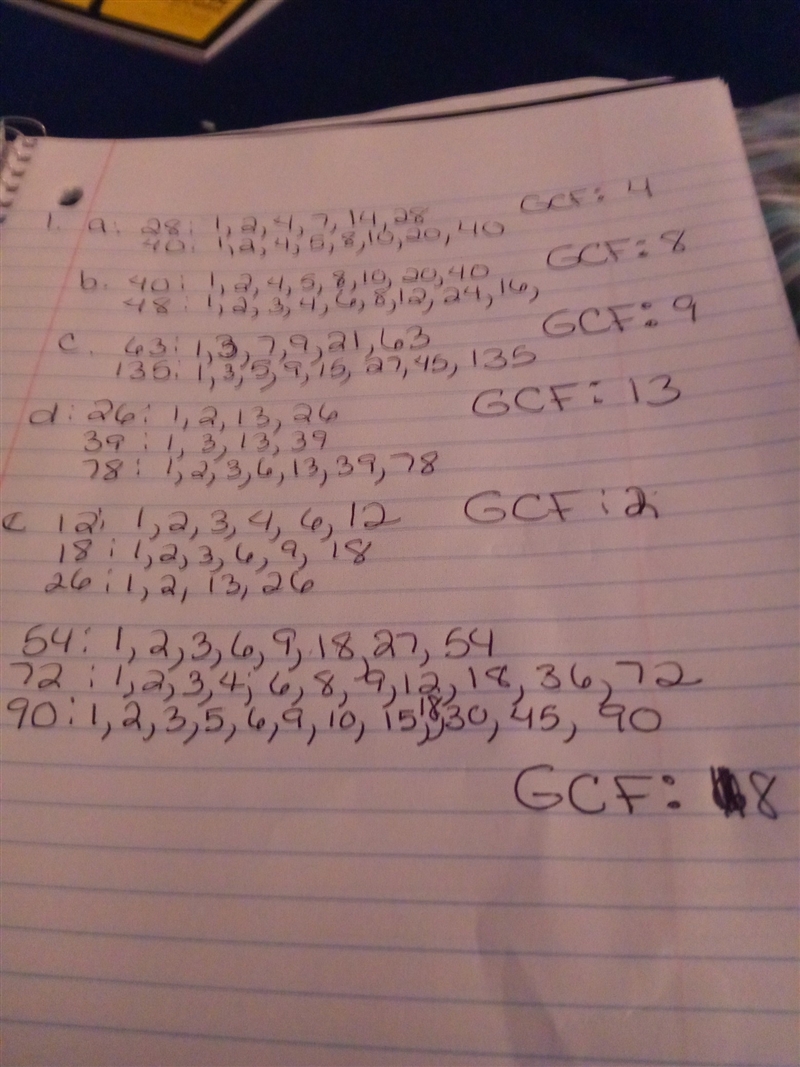 1. a: 28: 1, 2, 4, 7, 14, 28 GCF: 4
40: 1, 2, 4, 5, 8, 10, 20, 40
b. 40: 1, 2, 4, 5, 8, 10, 20, 40 GCF: 8
48: 1, 2, 3, 4, 6, 8, 12, 24, 16,
c. 63: 1, 3, 7, 9, 21, 63 GCF: 9
135: 1, 3, 5, 9, 15, 27, 45, 135
d: 26: 1, 2, 13, 26 GCF: 13
39: 1, 3, 13, 39
78: 1, 2, 3, 6, 13, 39, 78
e 12: 1, 2, 3, 4, 6, 12 GCF: 2
18: 1, 2, 3, 6, 9, 18
26: 1, 2, 13, 26
54: 1, 2, 3, 6, 9, 18, 27, 54
72: 1, 2, 3, 4, 6, 8, 9, 12, 18, 36, 72
90: 1, 2, 3, 5, 6, 9, 10, 15, 18, 30, 45, 90
GCF: 18